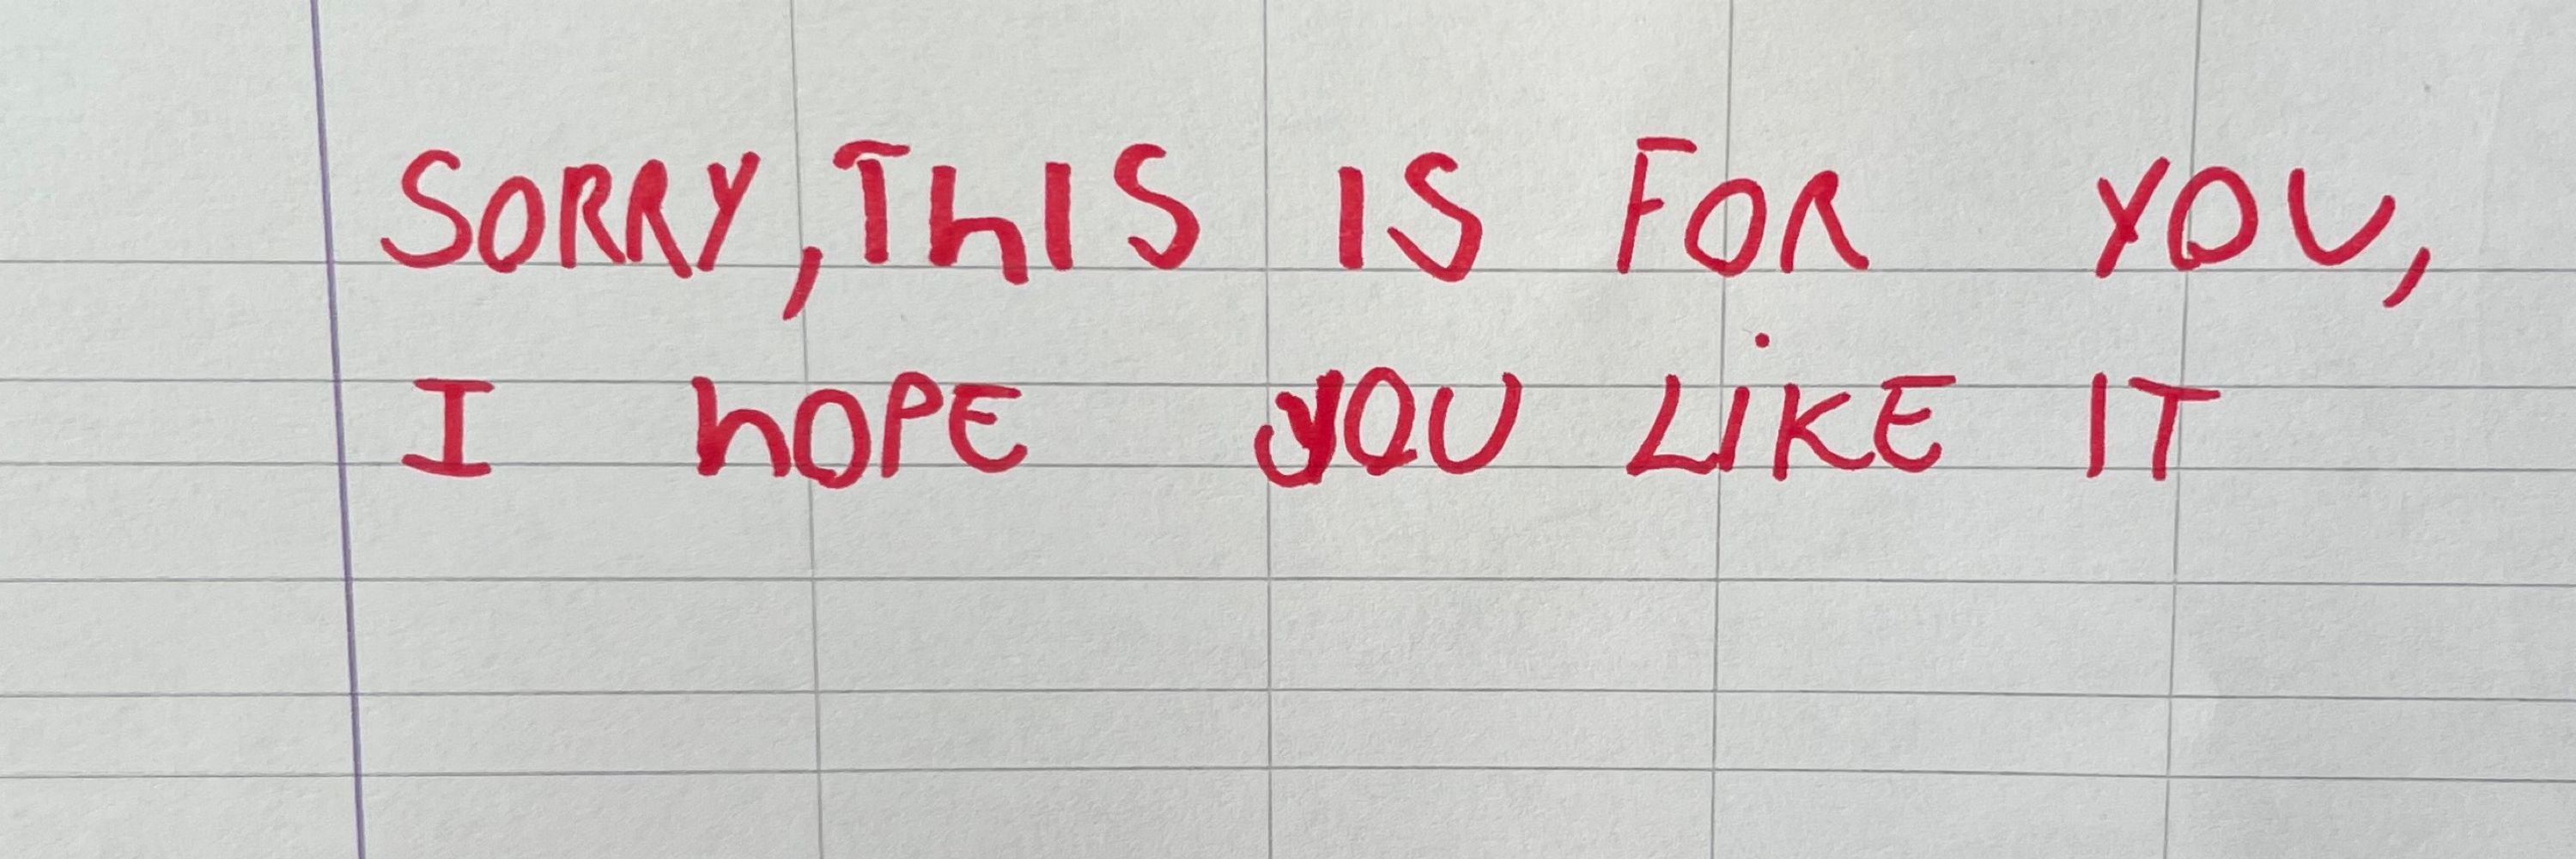 SORRY, ThIS IS FOR YOU,
I hOPE YOU LiKE IT